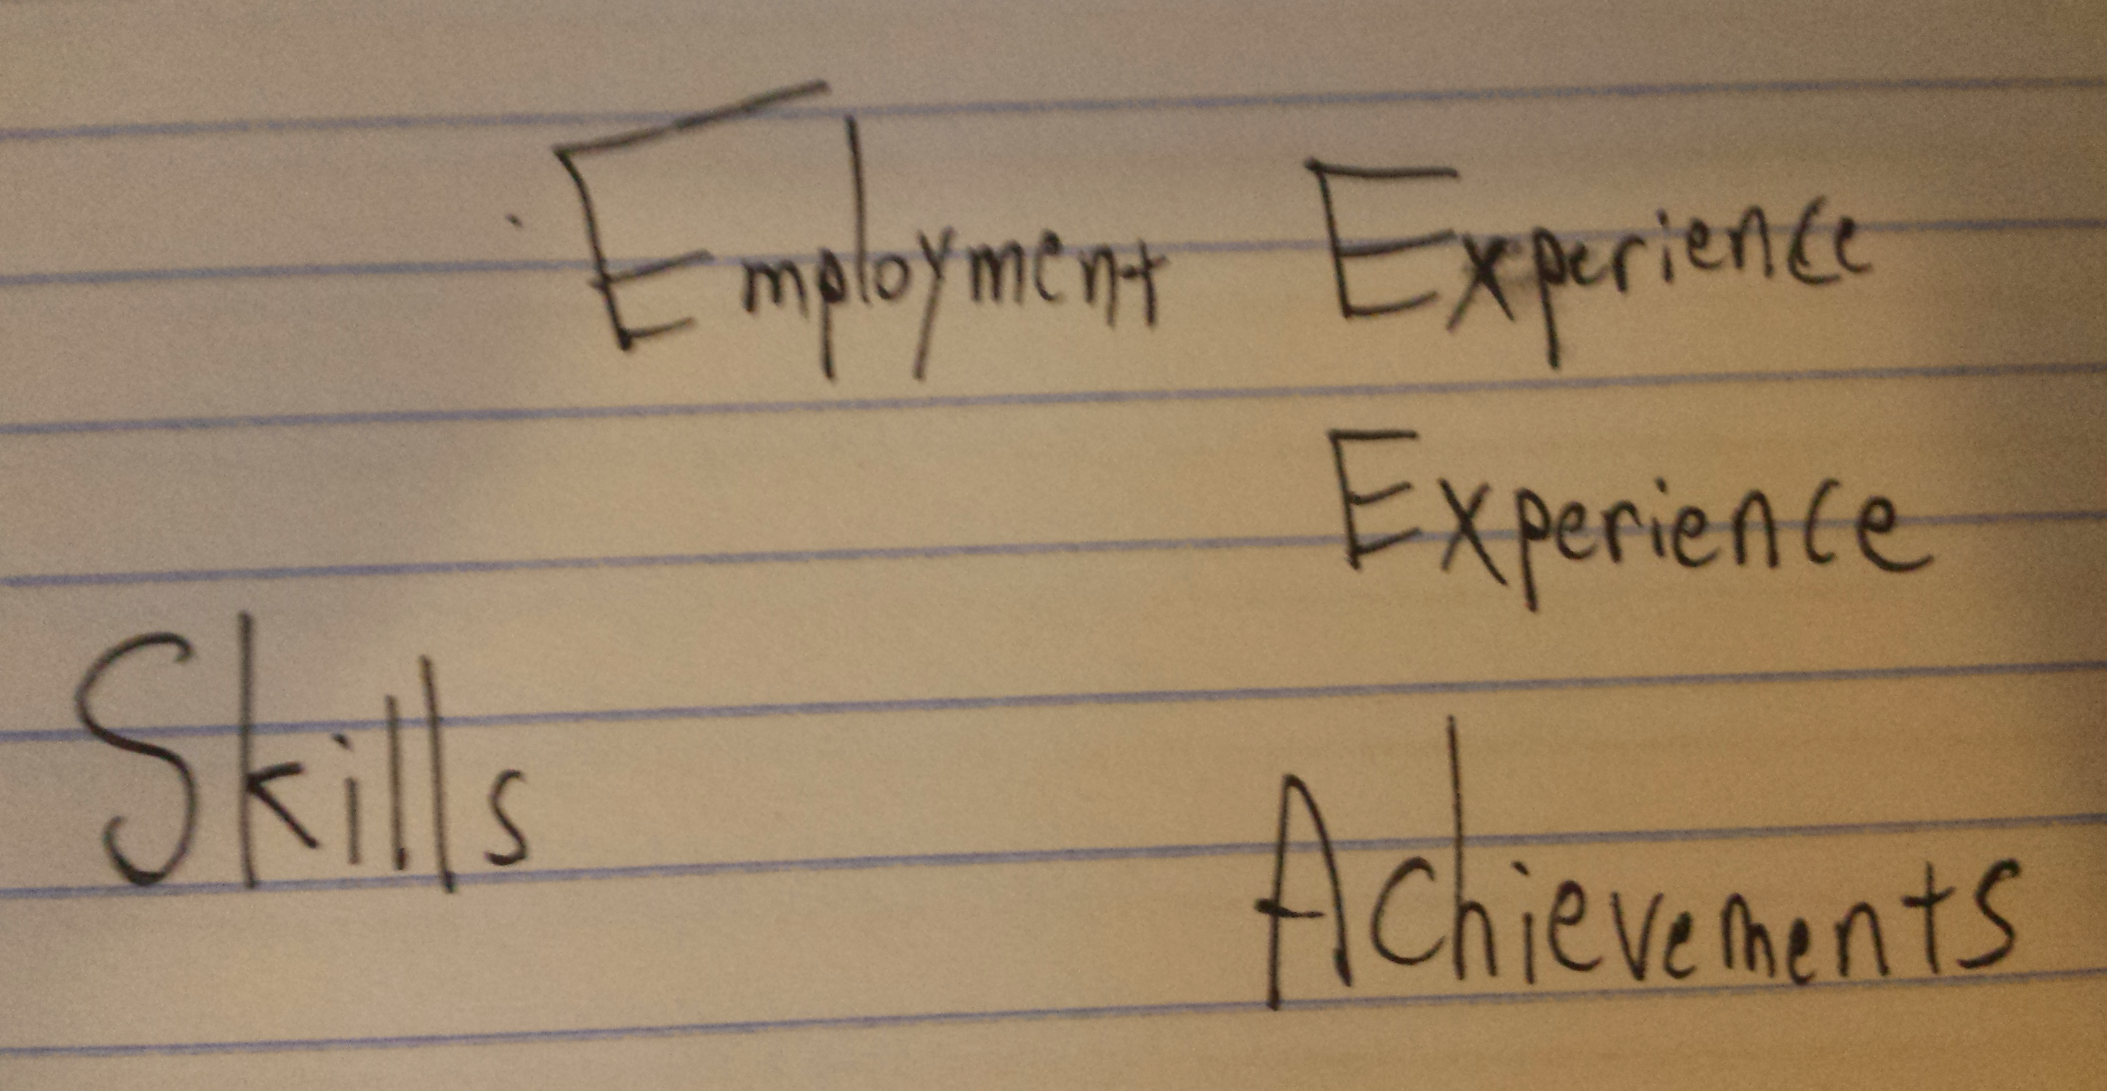 Employment Experience
Experience
Skills
Achievements